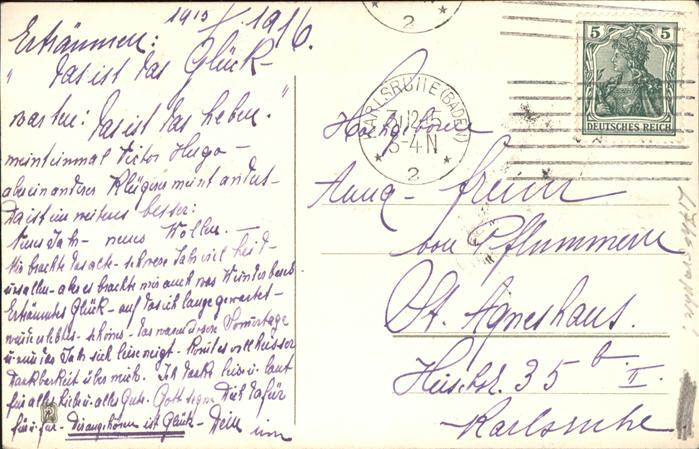 1915 / 1916.
Erträumen:
"Das ist das Glück -
warten: Das ist das Leben."
meint einmal Victor Hugo -
aber ein anderer Klügerer meint anders -
Da ist ein weiteres besser:
Neues Jahr - neues Wollen. -
Mir brachte das alte - schwere Jahr viel Leid -
uns allen - aber es brachte mir auch was Wunderbares
Erträumtes Glück - auf das ich lange gewartet -
das waren diese Sommertage
u. nun das Jahr sich leise neigt - kommt es voll heisser
Dankbarkeit über mich. Ich danke leise u. laut
für alles Liebe u. alles Gute. Gott segne Dich dafür
für u. für - Dir angehören ist Glück - Dein
KARLSRUHE (BADEN)
2
2
5 5
DEUTSCHES REICH
Hochgeboren
Anna - Freiin
von Pflummern
St. Agneshaus.
Hirschstr. 35 b II.
Karlsruhe.